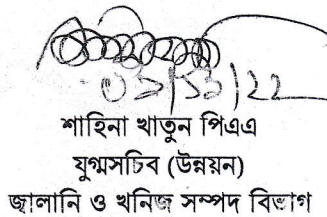 শাহিনা খাতুন পিএএ
যুগ্মসচিব (উন্নয়ন)
জ্বালানি ও খনিজ সম্পদ বিভাগ